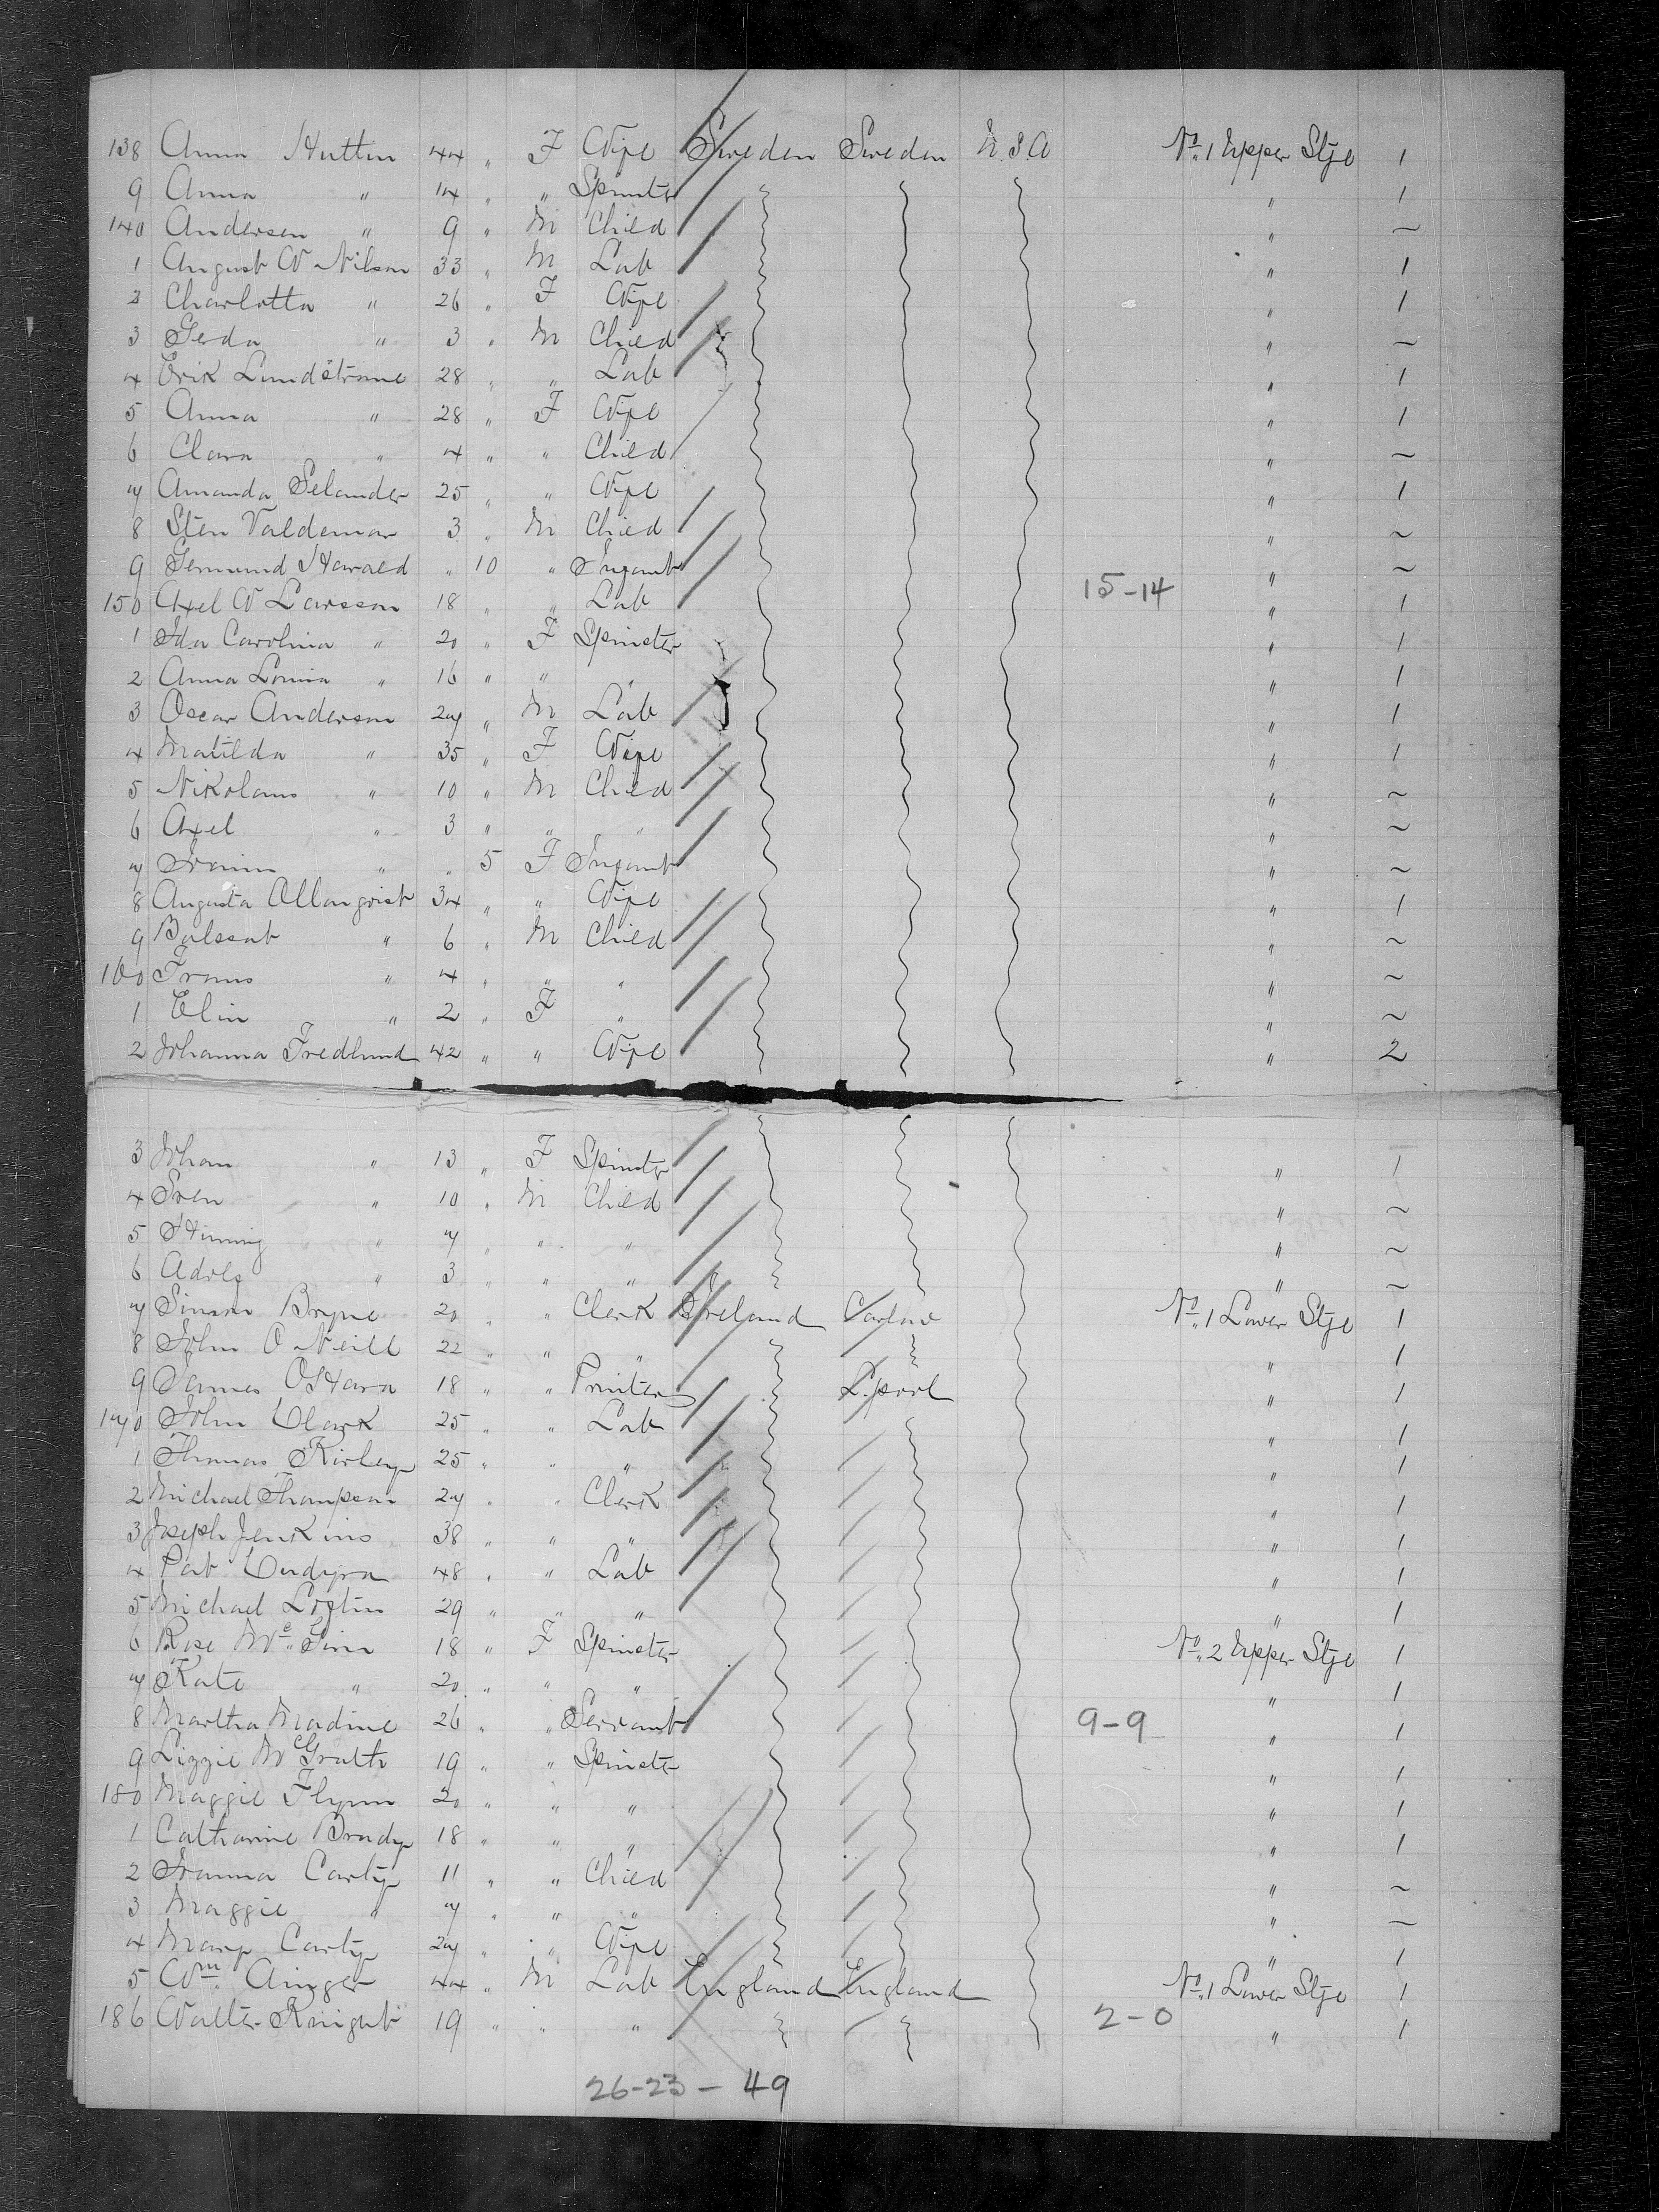 138 Anna Hutten 44 " F Wife Sweden Sweden U.S.A No. 1 Upper Stge 1
9 Anna " 14 " " Spinster " 1
140 Andersen " 9 " M Child " ~
1 August W Nilson 33 " M Lab " 1
2 Charlotta " 26 " F Wife " 1
3 Gerda " 3 " M Child " ~
4 Erik Lundstrome 28 " " Lab " 1
5 Anna " 28 " F Wife " 1
6 Clara " 4 " " Child " ~
7 Amanda Selander 25 " " Wife " 1
8 Sten Valdemar 3 " M Child " ~
9 Germund Harald " 10 " Infant " ~
150 Axel W Larsson 18 " " Lab 15-14 " 1
1 Ida Carolina " 20 " F Spinster " 1
2 Anna Lovisa " 16 " " " " 1
3 Oscar Anderson 27 " M Lab " 1
4 Matilda " 35 " F Wife " 1
5 Nikolaus " 10 " M Child " ~
6 Axel " 3 " " " " ~
7 " " 5 F Infant " ~
8 Augusta 34 " " Wife " 1
9 " 6 " M Child " ~
160 Frans " 4 " " " " ~
1 Elin " 2 " F " " ~
2 Johanna Fredlund 42 " " Wife " 2
3 Johan " 13 " F Spinster " 1
4 Sven " 10 " M Child " ~
5 Hinning " 7 " " " " ~
6 Adolf " 3 " " " " ~
7 Simon Bryne 20 " " Clerk Ireland Carlow No. 1 Lower Stge 1
8 John O Neill 22 " " " " 1
9 James O'Hara 18 " " Printer L.pool " 1
170 John Clark 25 " " Lab " 1
1 Thomas Kirley 25 " " " " 1
2 Michael Thompson 27 " " Clerk " 1
3 Joseph Jenkins 38 " " " " 1
4 Pat 48 " " Lab " 1
5 Michael Loftus 29 " " " " 1
6 Rose 18 " F Spinster No. 2 Upper Stge 1
7 Kate " 20 " " " " 1
8 Martha Madine 26 " " Servant 9-9 " 1
9 Lizzie McGrath 19 " " Spinster " 1
180 Maggie Flynn 20 " " " " 1
1 Catharine Brady 18 " " " " 1
2 Carty 11 " " Child " ~
3 Maggie " 7 " " " " ~
4 Mary Carty 27 " " Wife " 1
5 Wm. Ainger 44 " M Lab England England No. 1 Lower Stge 1
186 Walter Knight 19 " " " 2-0 " 1
26-23-49